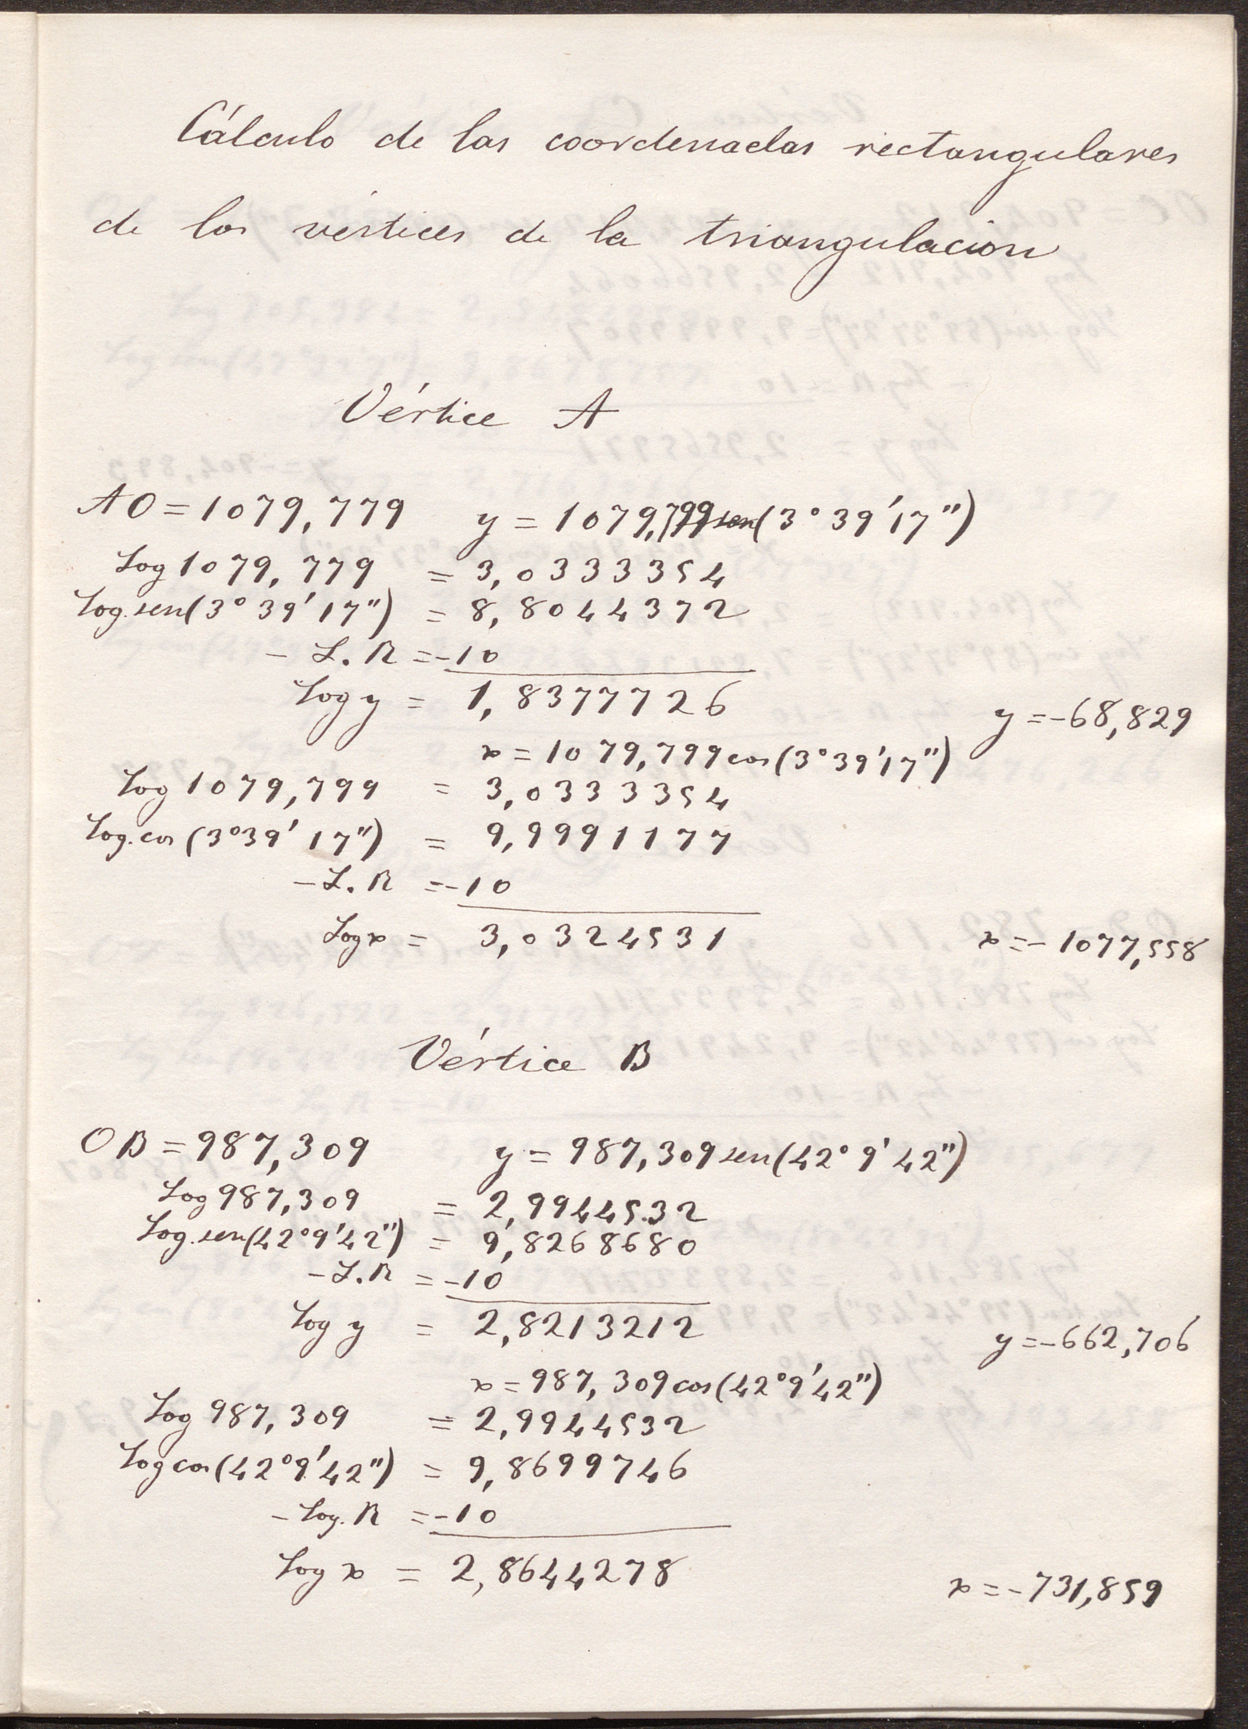 Cálculo de las coordenadas rectangulares
de los vértices de la triangulación
Vértice A
AO = 1079,779 y = 1079,799 sen(3° 39' 17")
Log 1079,779 = 3,0333354
Log. sen(3° 39' 17") = 8,8044372
- L. R = -10
Log y = 1,8377726
y = -68,829
x = 1079,799 cos(3° 39' 17")
Log 1079,799 = 3,0333354
Log. cos (3° 39' 17") = 9,9991177
- L. R = -10
Log x = 3,0324531
x = - 1077,558
Vértice B
OB = 987,309 y = 987,309 sen(42° 9' 42")
Log 987,309 = 2,9944532
Log. sen(42° 9' 42") = 9,8268680
- L. R = -10
Log y = 2,8213212
y = -662,706
x = 987,309 cos(42° 9' 42")
Log 987,309 = 2,9944532
Log cos(42° 9' 42") = 9,8699746
- Log. R = -10
Log x = 2,8644278
x = -731,859